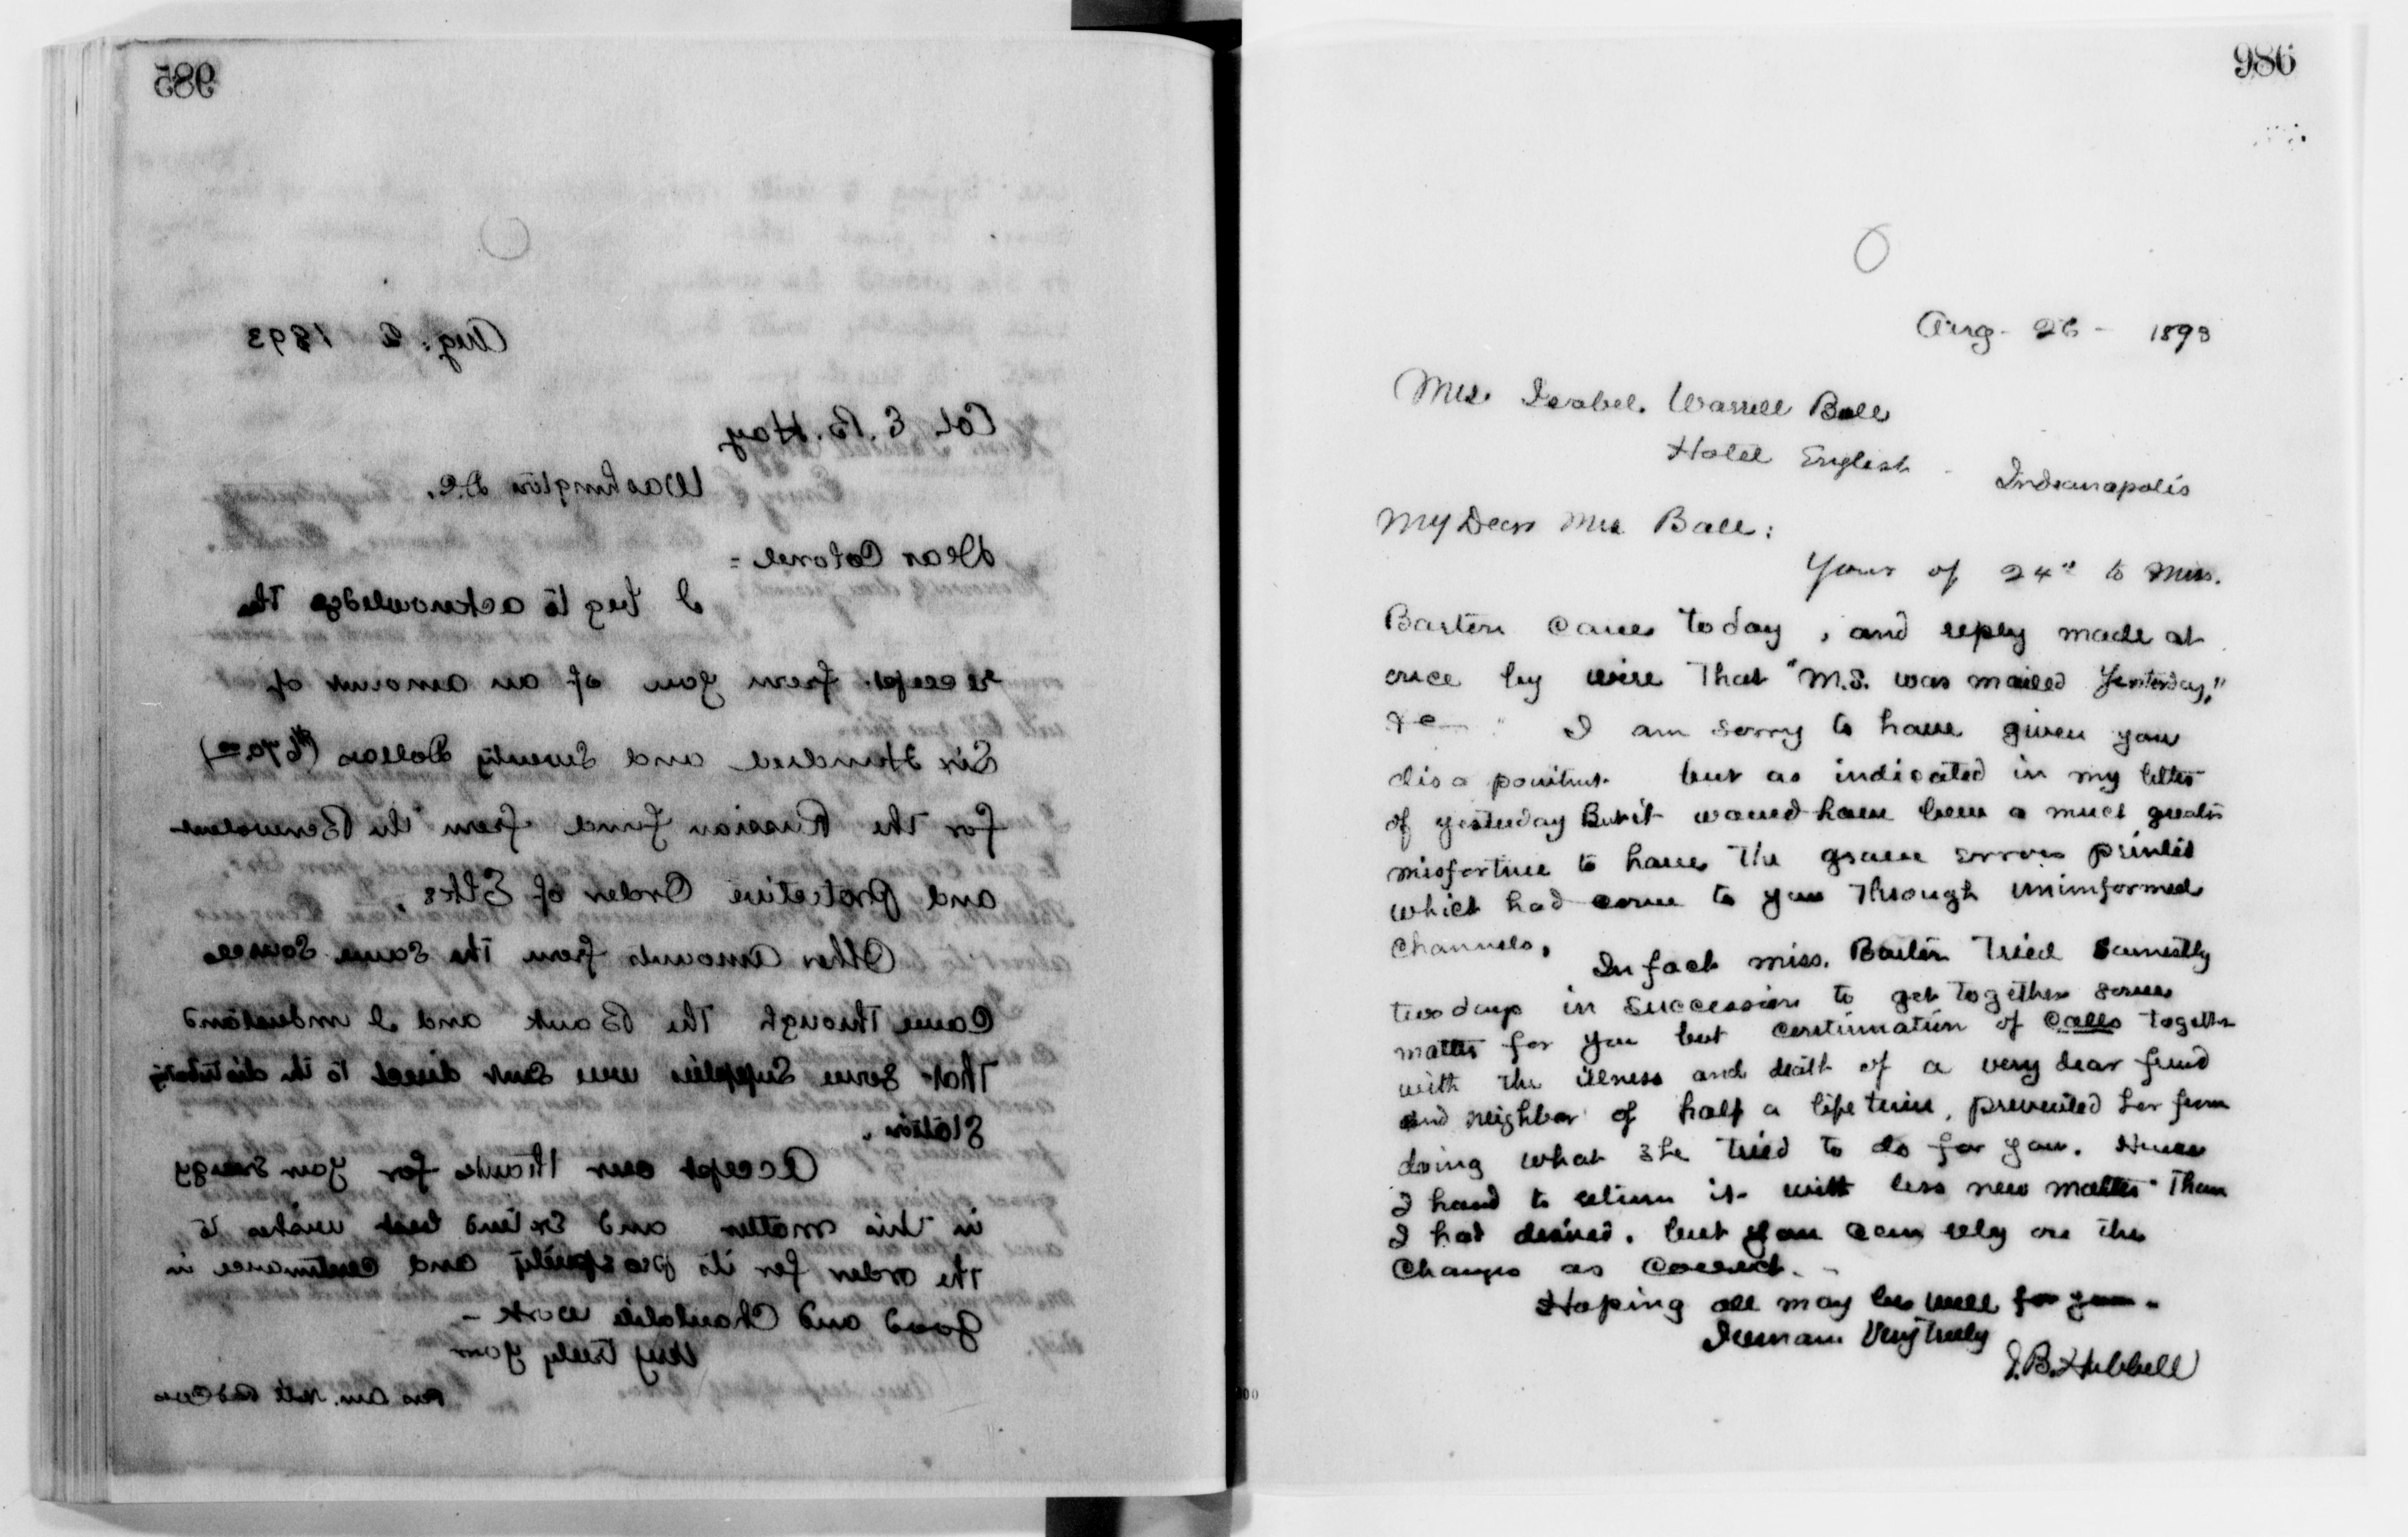 985
Aug. 2 1893
Col. E. B. Hay
Washington D.C.
Dear Colonel =
I beg to acknowledge the
receipt from you of an amount of
Six Hundred and Seventy Dollars ($670.00)
for the Russian fund from the Benevolent
and Protective Order of Elks.
Other amounts from the same source
Came through the Bank and I understand
That some Supplies were sent direct to the distributing
Station.
Accept our thanks for your energy
in this matter and Extend best wishes to
The order for its prosperity and continuance in
good and Charitable work -
Very truly yours
Pres Am. Natl Red Cross
986
Aug - 26 - 1893
Mrs. Isabel. Worrell Ball
Hotel English - Indianapolis
My Dear Mrs Ball:
Yours of 24th to Miss.
Barton came today, and reply made at
once by wire That "M.S. was mailed Yesterday,"
&c - I am sorry to have given you
disapointmt. but as indicated in my letter
of yesterday But it would have been a much greater
misfortune to have The grave errors printed
which had come to you Through uninformed
Channels.
In fact miss. Barton Tried earnestly
two days in succession to get together some
matter for you but continuation of calls together
with The illness and death of a very dear friend
and neighbor of half a life time, prevented her from
doing what she tried to do for you. Hence
I hand to return it with less new matter Than
I had desired. but you can rely on the
Changes as Correct. -
Hoping all may be well for you -
I remain Very Truly
J. B. Hubbell